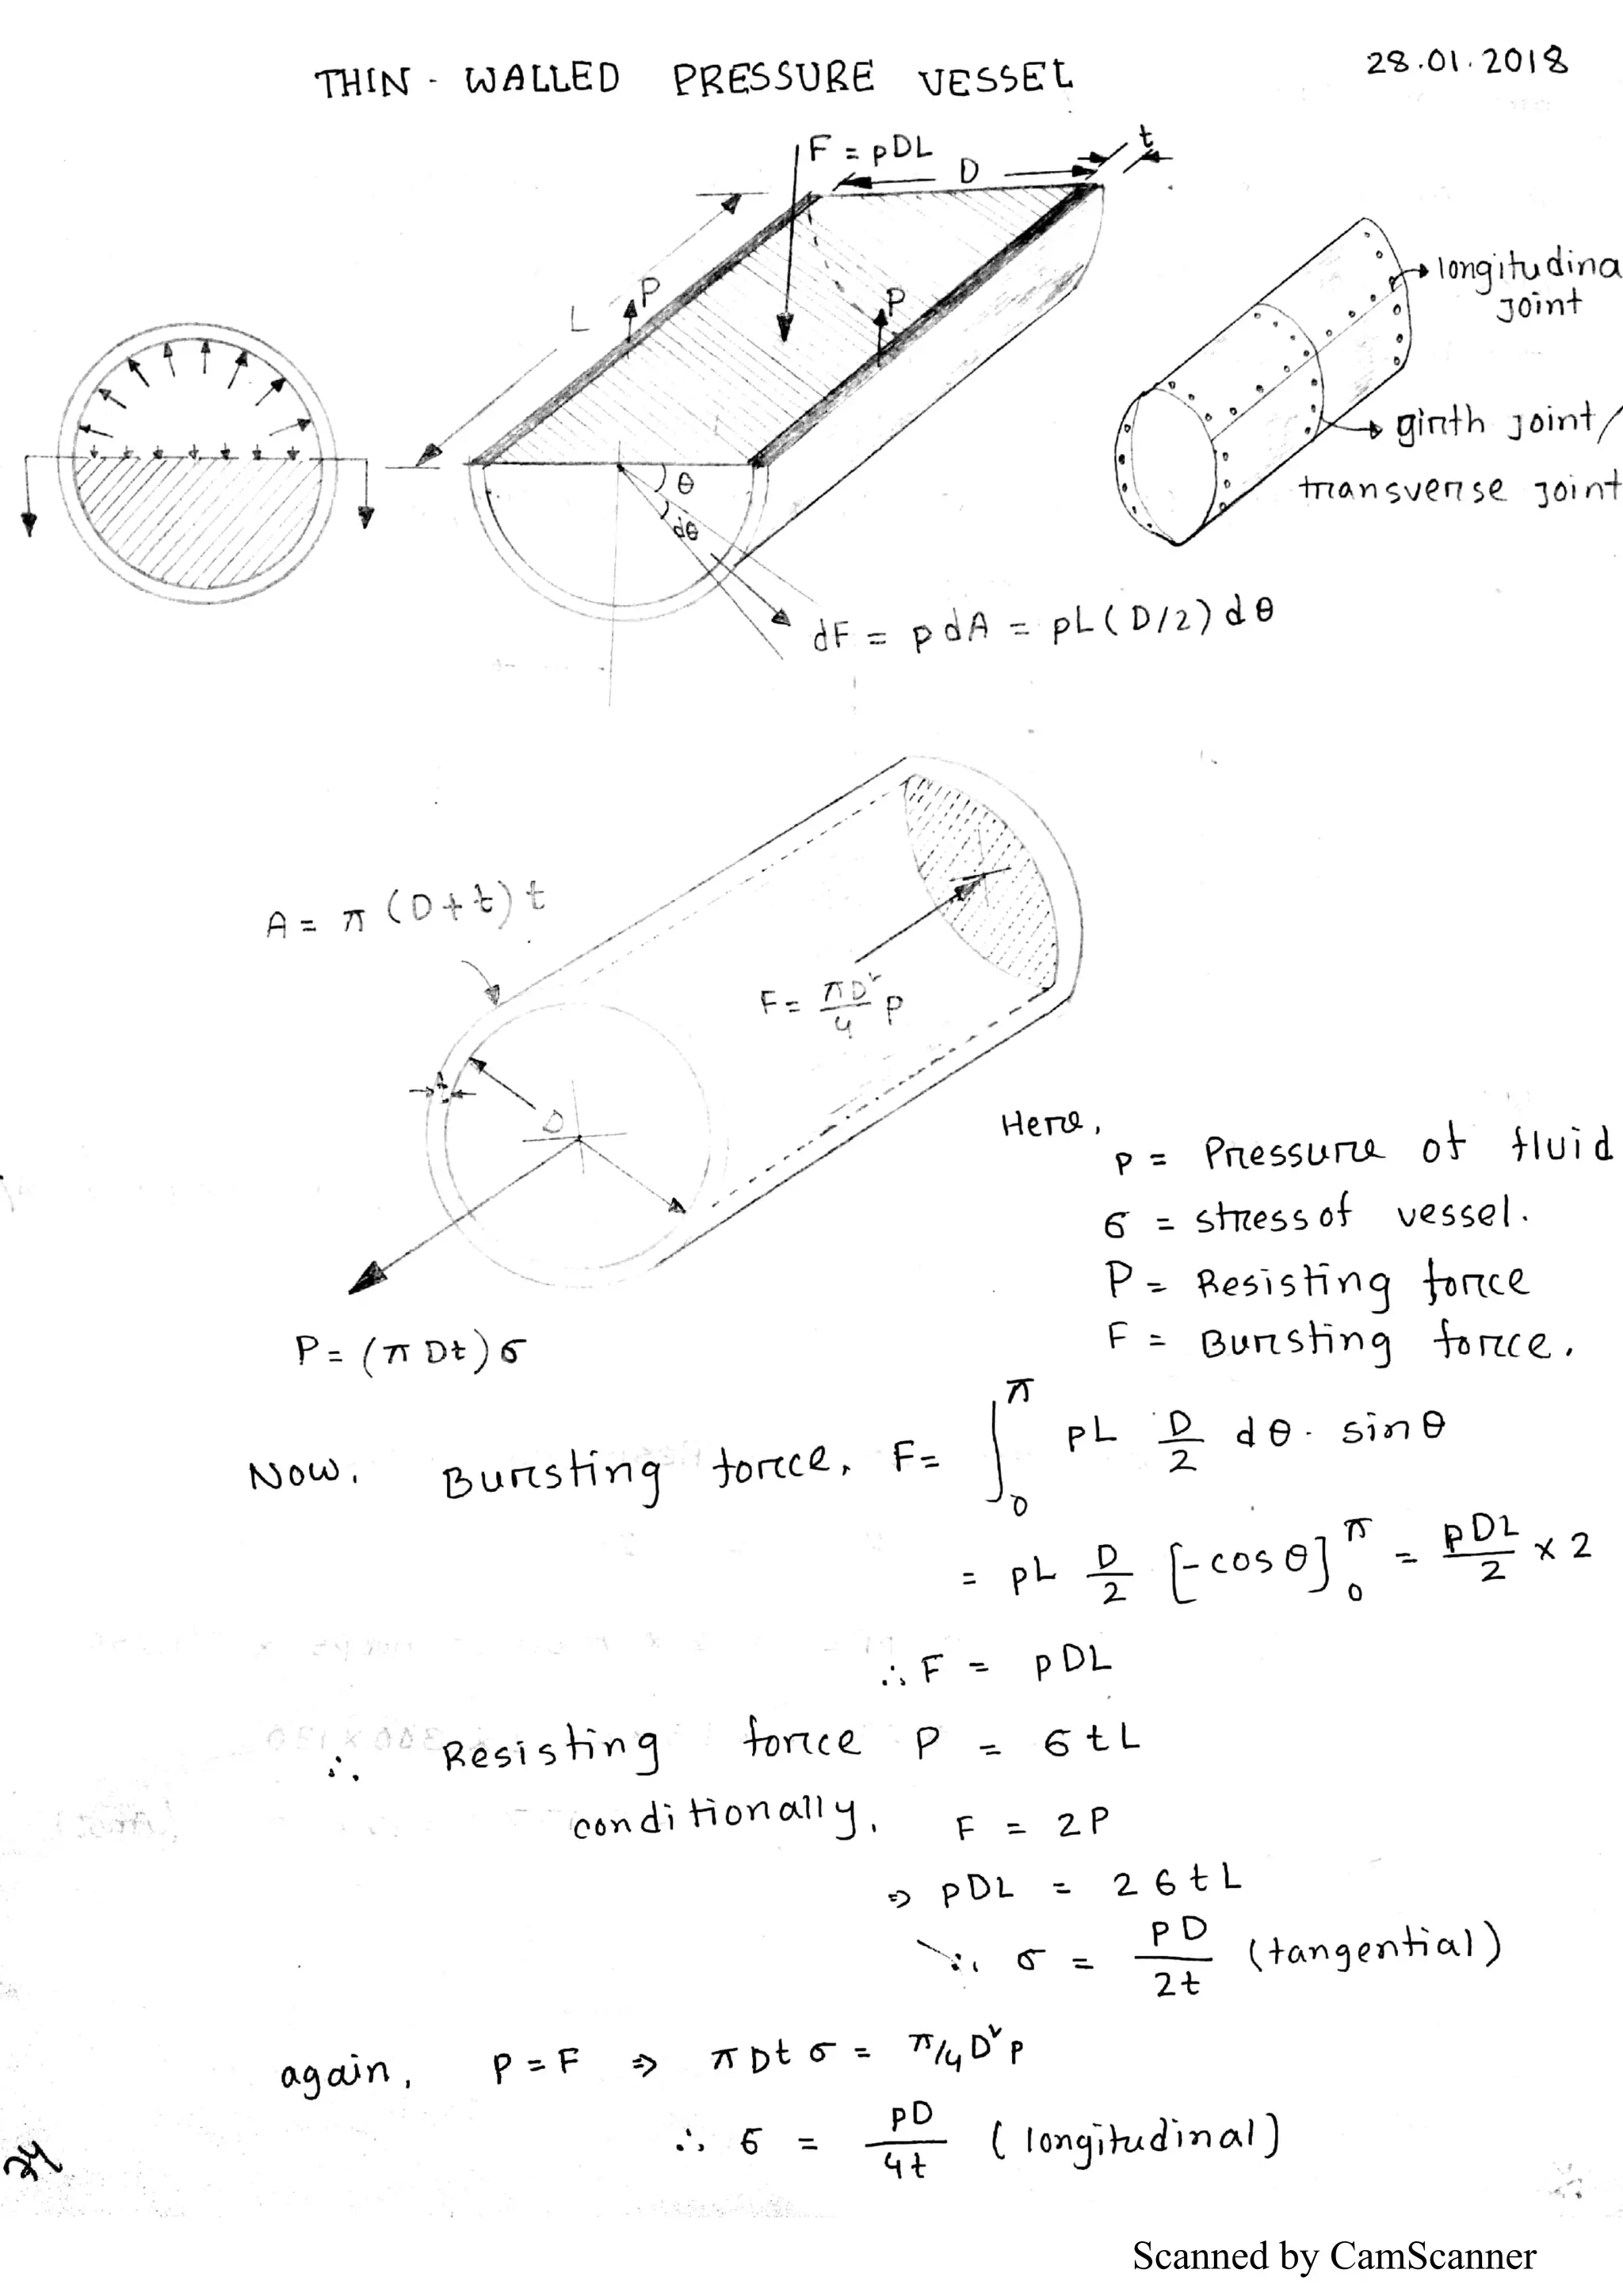 THIN - WALLED PRESSURE VESSEL
28.01.2018
F = pDL
D
t
L
P
P
longitudina
joint
girth joint/
transverse joint
θ
dθ
dF = p dA = pL(D/2) dθ
A = π (D+t) t
F = πD²/4 p
t
D
P = (π Dt) σ
Here,
p = Pressure of fluid
σ = stress of vessel.
P = Resisting force
F = Bursting force.
Now, Bursting force, F = ∫₀^π pL D/2 dθ. sinθ
= pL D/2 [-cosθ]₀^π = pDL/2 × 2
∴ F = pDL
∴ Resisting force P = σtL
conditionally, F = 2P
⇒ pDL = 2σtL
∴ σ = pD/2t (tangential)
again, P = F ⇒ πDtσ = π/4 D² p
∴ σ = pD/4t (longitudinal)
Scanned by CamScanner